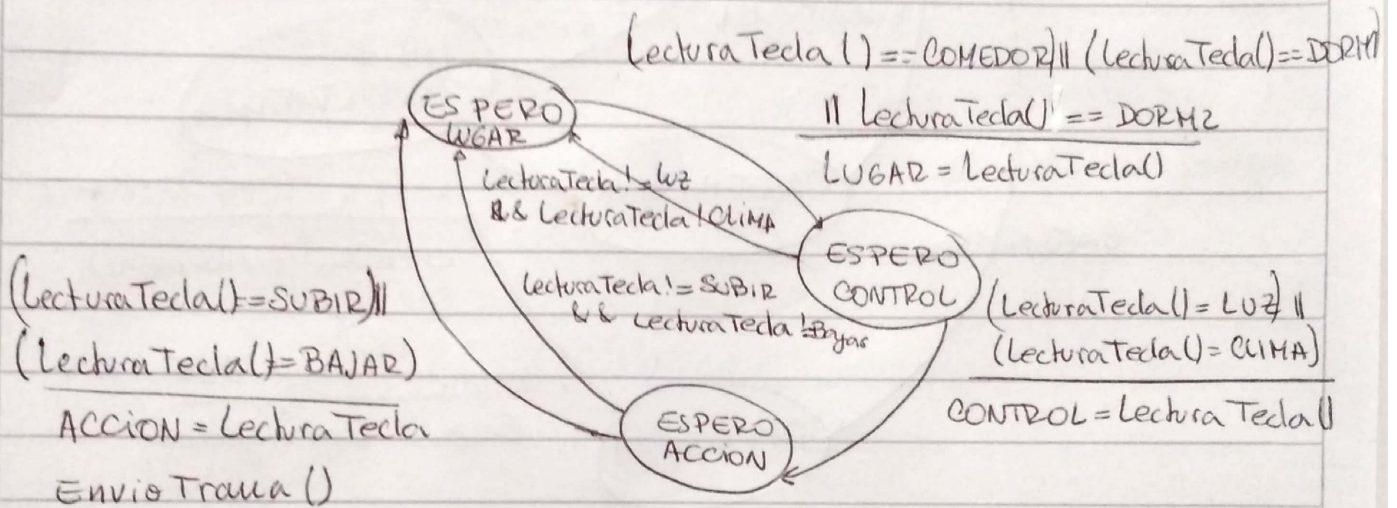 (LecturaTecla()==COMEDOR)|| (LecturaTecla()==DORM1)
|| LecturaTecla() == DORM2
LUGAR = LecturaTecla()
ESPERO
LUGAR
LecturaTecla!=LUZ
&& LecturaTecla!CLIMA
ESPERO
CONTROL
(LecturaTecla()=LUZ) ||
(LecturaTecla()=CLIMA)
CONTROL=LecturaTecla()
LecturaTecla!=SUBIR
&& LecturaTecla!=Bajar
(LecturaTecla()==SUBIR)||
(LecturaTecla()==BAJAR)
ACCION = LecturaTecla
EnvioTrama()
ESPERO
ACCION